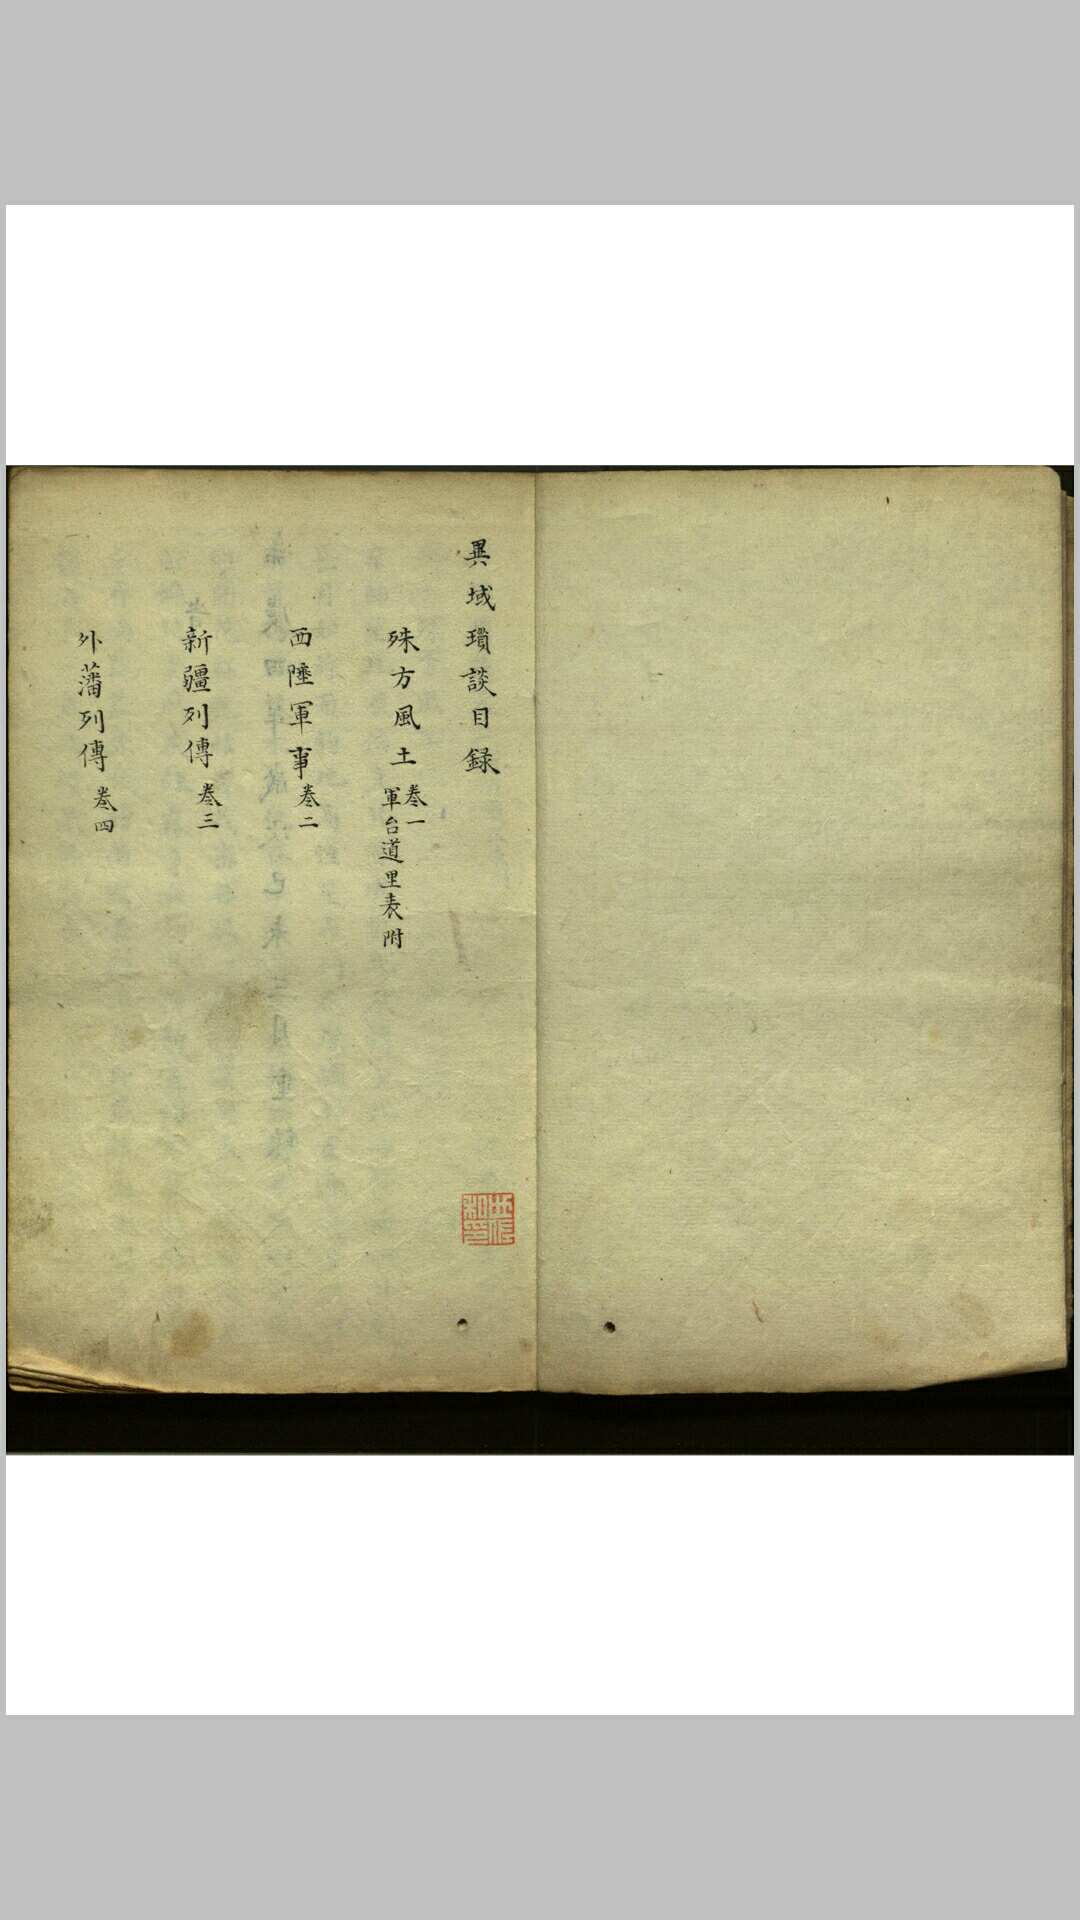 異域瑣談目録
殊方風土 卷一 軍台道里表附
西陲軍事 卷二
新疆列傳 卷三
外藩列傳 卷四